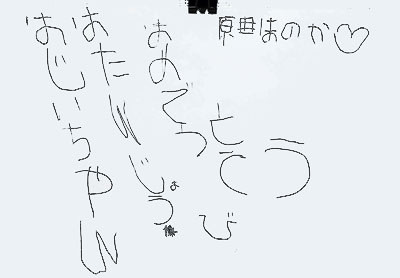 原田ほのか♡
おじいちゃん
おたんじょうび
おめでとう